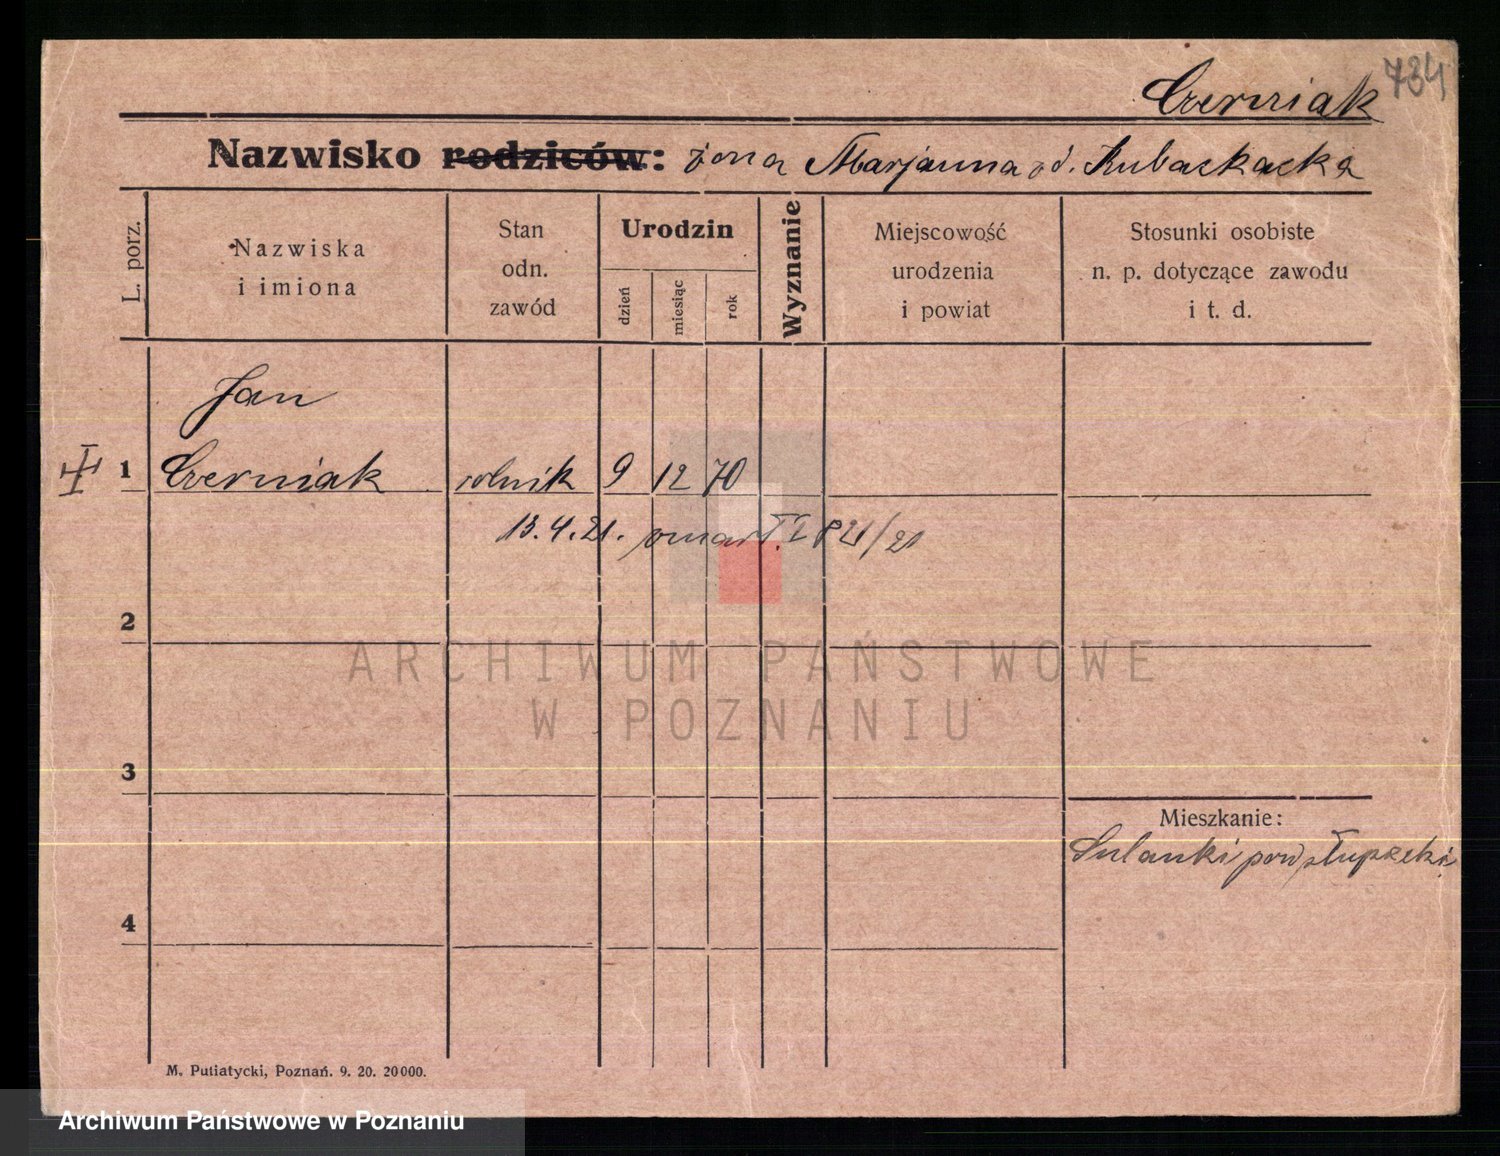 734
Czerniak
Nazwisko rodziców: żona Marjanna od. Kubackacka
L. porz.
Nazwiska
i imiona
Stan
odn.
zawód
Urodzin
dzień
miesiąc
rok
Wyznanie
Miejscowość
urodzenia
i powiat
Stosunki osobiste
n. p. dotyczące zawodu
i t. d.
Jan
1 Czerniak rolnik 9 12 70
13.4.21. zmarł. I P 21/21
2
ARCHIWUM PAŃSTWOWE
W POZNANIU
3
Mieszkanie:
Sulanki pow słupecki
4
M. Putiatycki, Poznań. 9. 20. 20000.
Archiwum Państwowe w Poznaniu